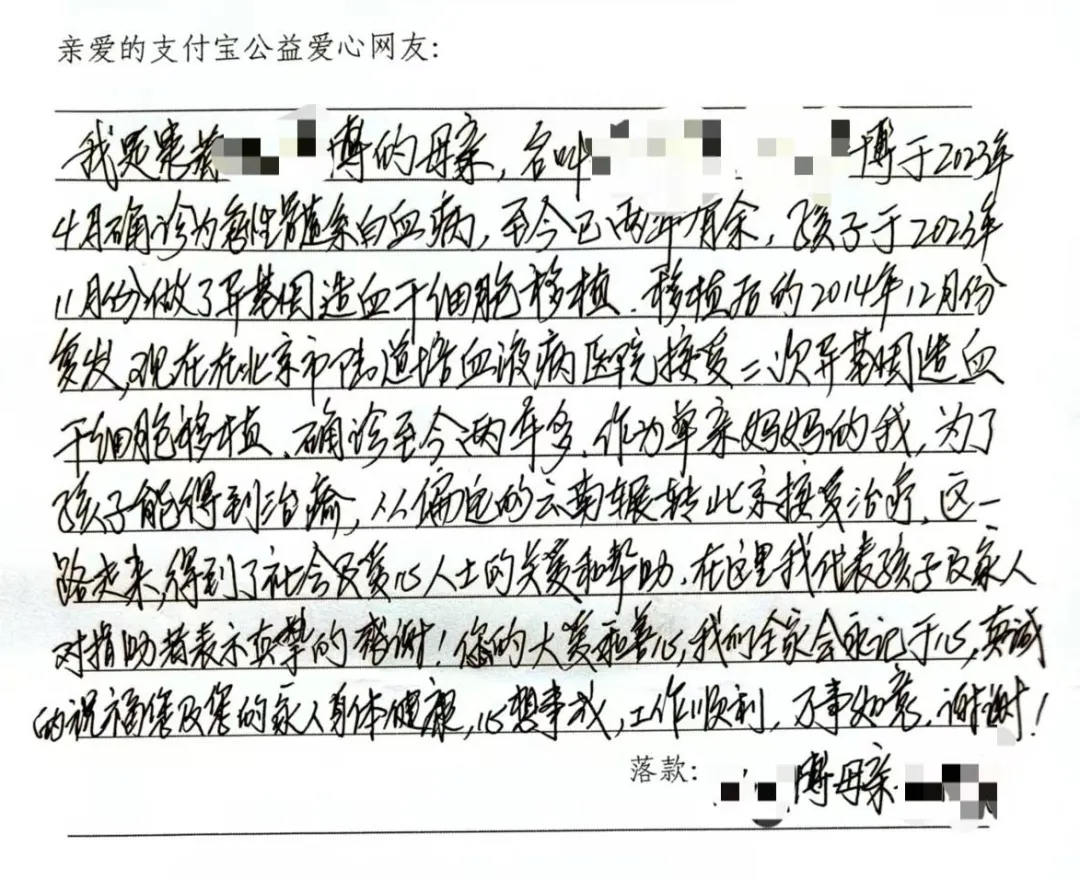 亲爱的支付宝公益爱心网友:
我是患者 博的母亲，名叫 . 博于2023年
4月确诊为急性髓系白血病，至今已两年有余，孩子于2023年
11月份做了异基因造血干细胞移植.移植后的2014年12月份
复发,现在在北京市陆道培血液病医院接受二次异基因造血
干细胞移植.确诊至今两年多.作为单亲妈妈的我,为了
孩子能得到治瘉,从偏远的云南辗转北京接受治疗.这一
路走来,得到了社会及爱心人士的关爱和帮助.在这里我代表孩子及家人
对捐助者表示真挚的感谢!您的大爱和善心,我们全家会永记于心,真诚
的祝福您及您的家人身体健康,心想事成,工作顺利,万事如意.谢谢!
落款: 博母亲